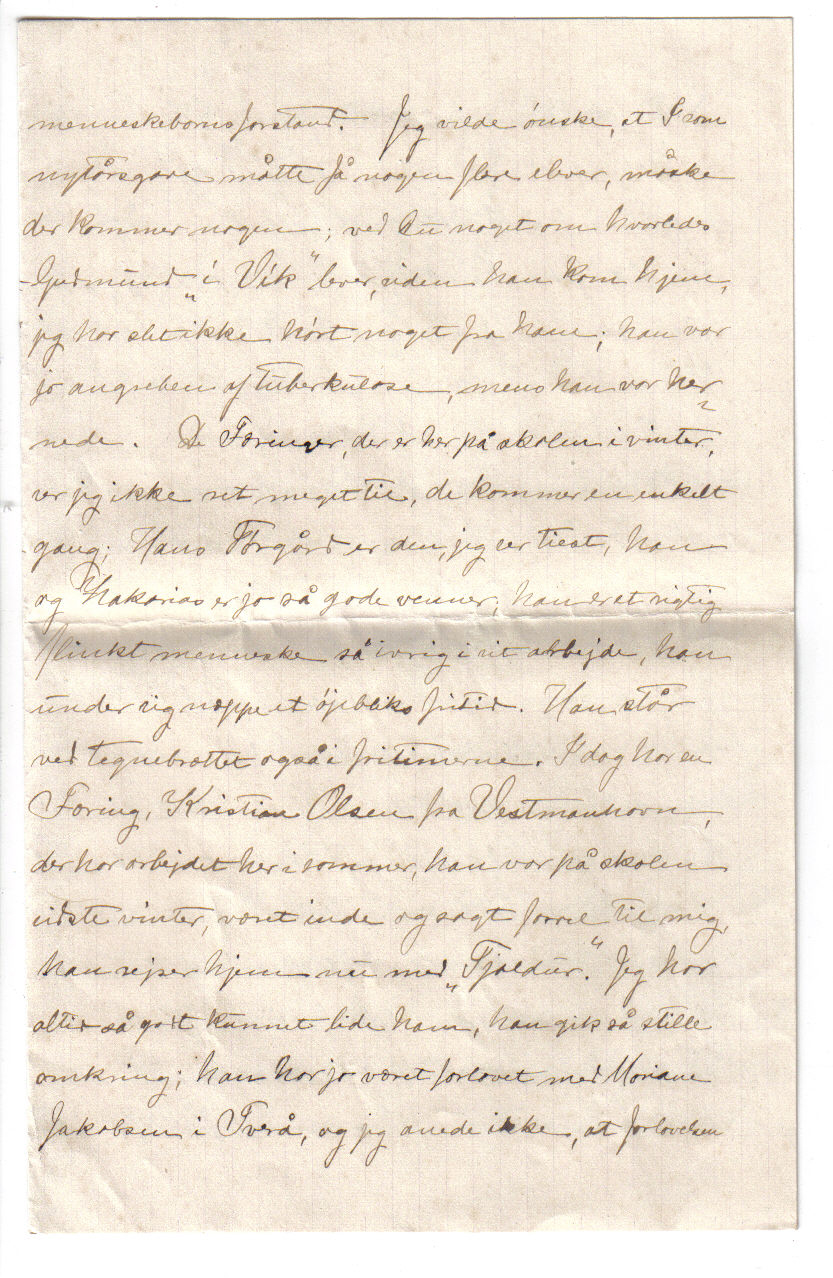 menneskebarns forstand. Jeg vilde ónske, at I som
nytårsgave måtte få nogen flere elever, måske
der kommer nogen; ved du noget om hvorledes
Gudmund „i Vík“ lever, siden han kom hjem,
jeg har slet ikke hórt noget fra ham; han var
jo angreben af tuberkulose, mens han var her
nede. De Færinger, der er her på skolen i vinter,
ser jeg ikke ret meget til, de kommer en enkelt
gang; Hans Tórgård er den, jeg ser tiest, han
og Zakarias er jo så gode venner, han er et rigtig
flinkt menneske så ivrig i sit arbejde, han
under sig næppe et öjebliks fritid. Han står
ved tegnebrættet også i fritimerne. I dag har en
Færing, Kristian Olsen fra Vestmanhavn,
der har arbejdet her i sommer, han var på skolen
sidste vinter, været inde og sagt farvel til mig,
han rejser hjem nu med „Tjaldur.“ Jeg har
altid så godt kunnet lide ham, han gik så stille
omkring; han har jo været forlovet med Mariane
Jakobsen i Tverå, og jeg anede ikke, at forlovelsen